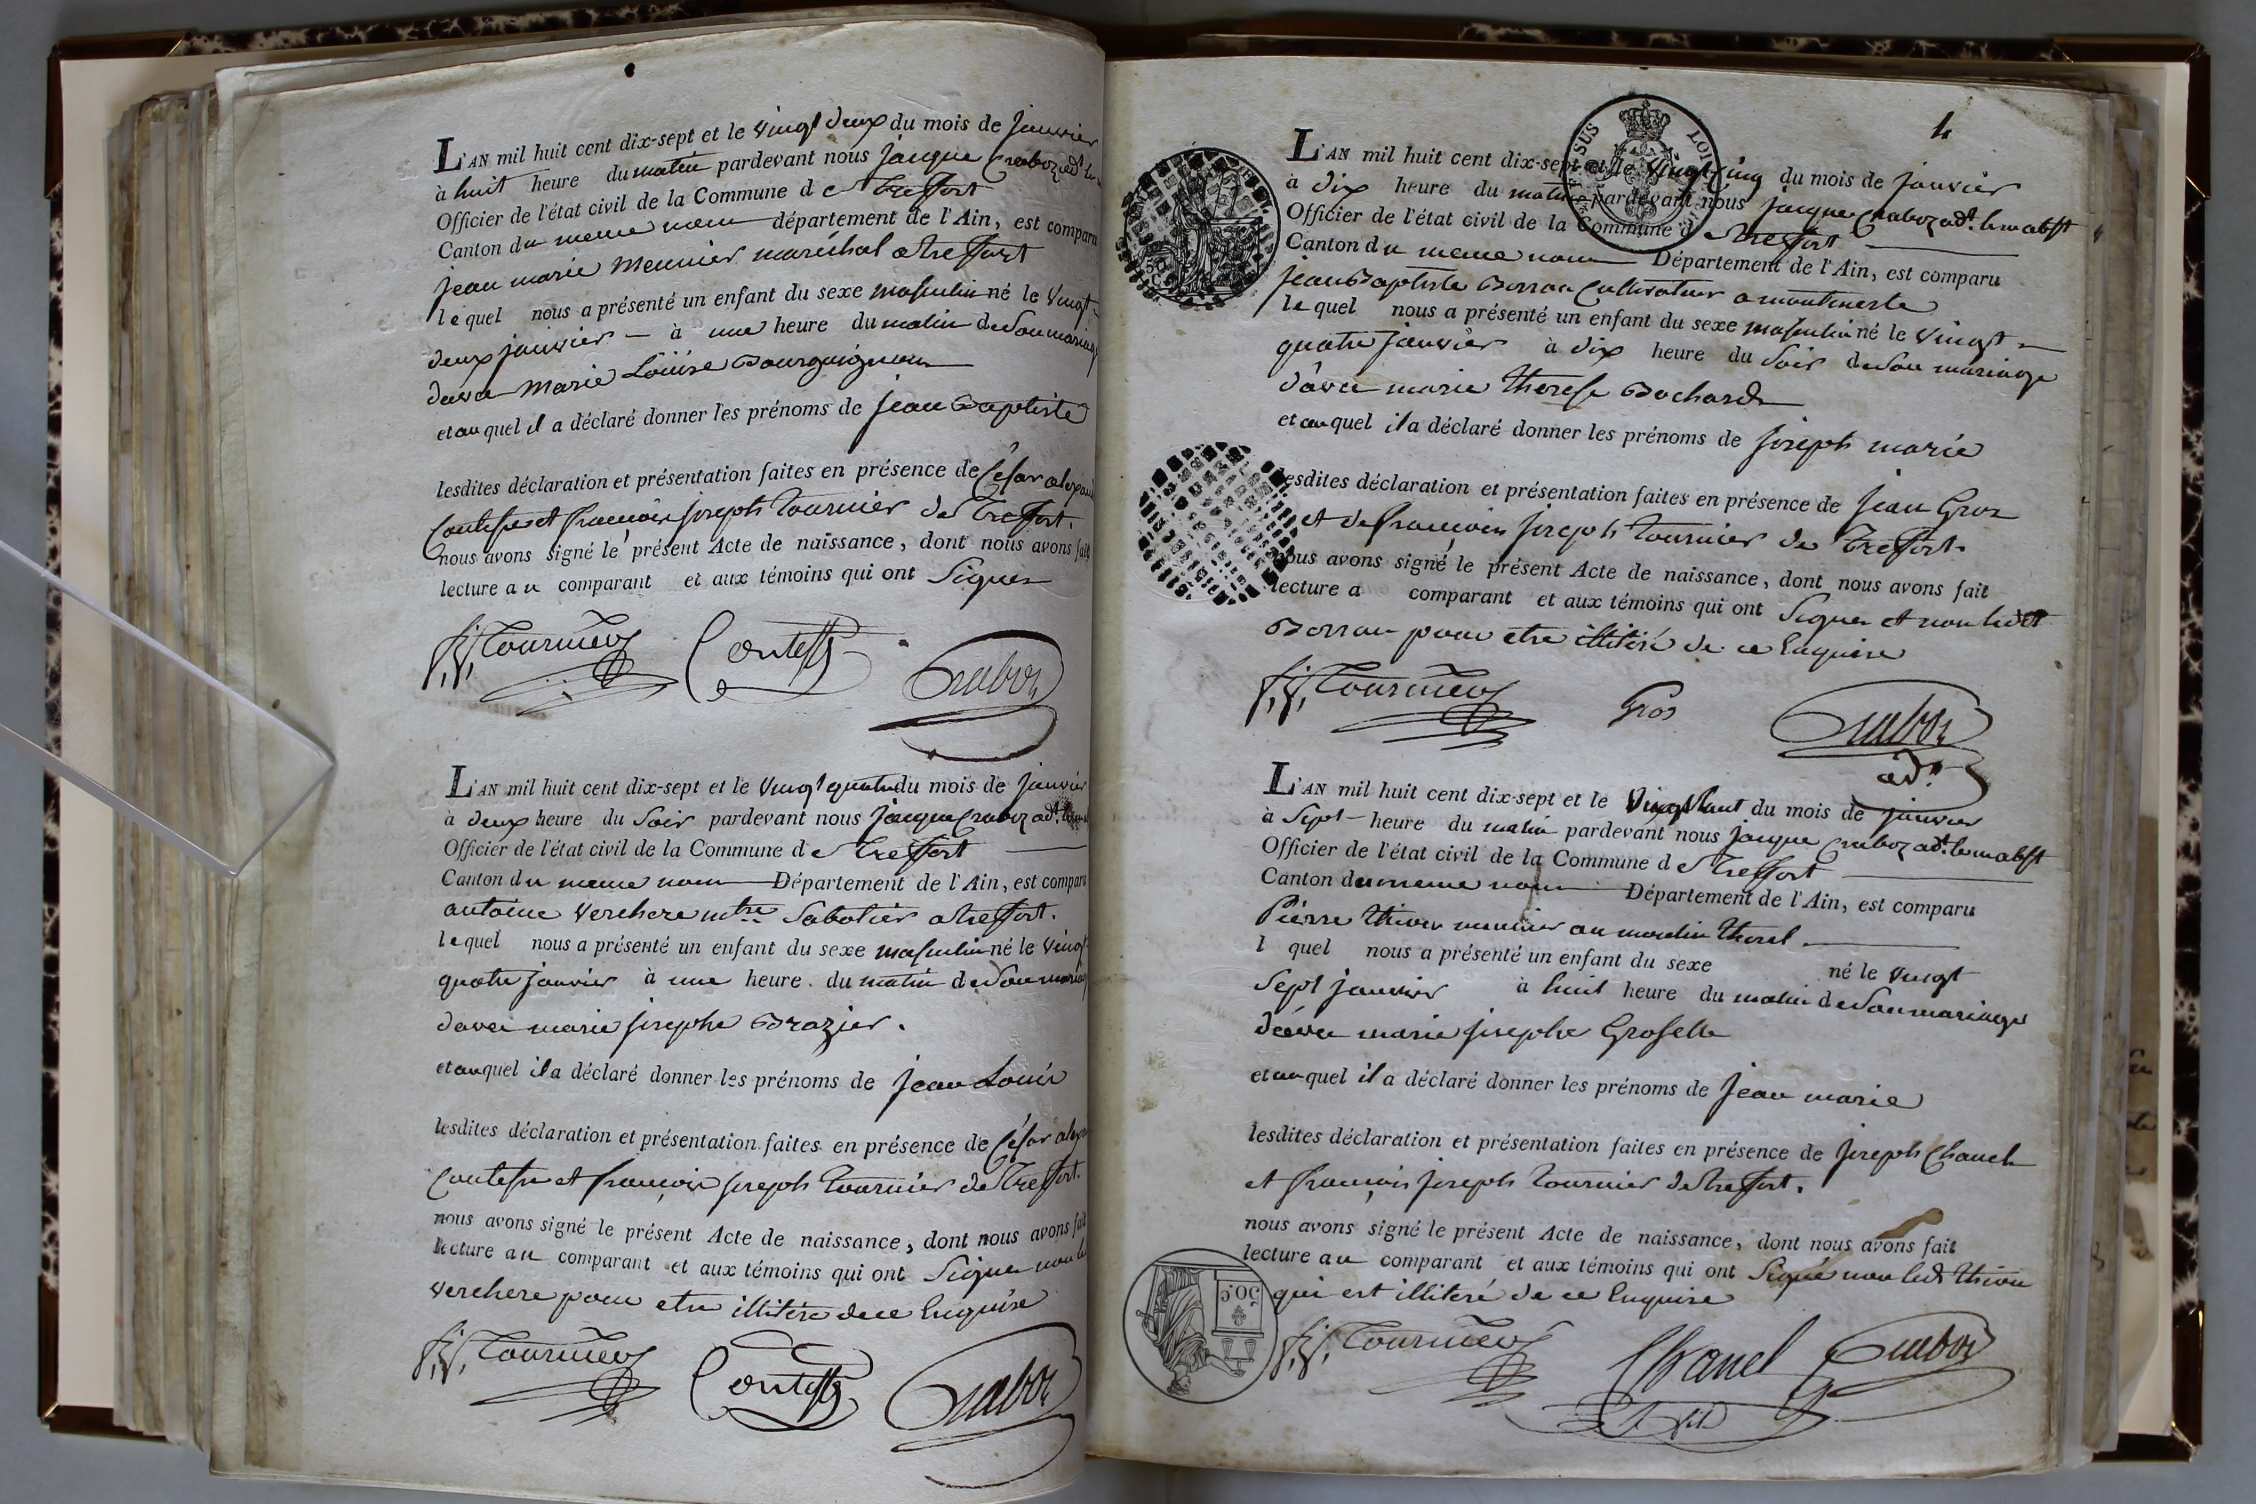 L'AN mil huit cent dix-sept et le vingt deux du mois de janvier
à huit heure du matin pardevant nous jacque Craboz adt.
Officier de l'état civil de la Commune de treffort
Canton du meme nom département de l'Ain, est comparu
jean marie Meunier maréchal a treffort
lequel nous a présenté un enfant du sexe masculin né le Vingt
deux janvier à une heure du matin de son mariage
davec Marie Louise Bourguignon
et auquel il a déclaré donner les prénoms de jean Baptiste
lesdites déclaration et présentation faites en présence de César
Contesse et francois joseph tournier de Treffort.
nous avons signé le présent Acte de naissance, dont nous avons fait
lecture au comparant et aux témoins qui ont Signer
f. j. Tournier Contesse Craboz
L'AN mil huit cent dix-sept et le vingt quatre du mois de janvier
à deux heure du Soir pardevant nous jacque Craboz adt.
Officier de l'état civil de la Commune de treffort
Canton du meme nom Département de l'Ain, est comparu
antoine Verchere mtre Sabotier a treffort.
lequel nous a présenté un enfant du sexe masculin né le vingt
quatre janvier à une heure du matin de son mariage
davec marie josephe Brazier.
et auquel il a déclaré donner les prénoms de jean Louis
lesdites déclaration et présentation faites en présence de César
Contesse et francois joseph tournier de Treffort.
nous avons signé le présent Acte de naissance, dont nous avons fait
lecture au comparant et aux témoins qui ont Signer non le
verchere pour etre illitéré de ce Enquise
f. j. Tournier Contesse Craboz
4
L'AN mil huit cent dix-sept et le Vingt cinq du mois de janvier
à dix heure du matin pardevant nous jacque Craboz adt. le m abst
Officier de l'état civil de la Commune de treffort
Canton du meme nom Département de l'Ain, est comparu
jean Baptiste Borron Cultivateur a montmerle
lequel nous a présenté un enfant du sexe masculin né le Vingt
quatre janvier à dix heure du Soir de son mariage
d'avec marie therese Bochard
et auquel il a déclaré donner les prénoms de joseph marie
lesdites déclaration et présentation faites en présence de jean Gros
et de francois joseph tournier de treffort.
nous avons signé le présent Acte de naissance, dont nous avons fait
lecture a comparant et aux témoins qui ont Signer et non ledt
Borron pour etre illitéré de ce Enquise
f. j. Tournier Gros Craboz
adt.
L'AN mil huit cent dix-sept et le Vingt huit du mois de janvier
à Sept heure du matin pardevant nous jacque Craboz adt. le m abst
Officier de l'état civil de la Commune de treffort
Canton du meme nom Département de l'Ain, est comparu
Pierre thion meunier au moulin thorel
l quel nous a présenté un enfant du sexe né le vingt
Sept janvier à huit heure du matin de son mariage
d'avec marie josephe Groselle
et auquel il a déclaré donner les prénoms de jean marie
lesdites déclaration et présentation faites en présence de joseph Chanel
et francois joseph tournier de treffort.
nous avons signé le présent Acte de naissance, dont nous avons fait
lecture au comparant et aux témoins qui ont Signé non led. thion
qui est illitéré de ce Enquise
50.C
f. j. Tournier Chanel Craboz